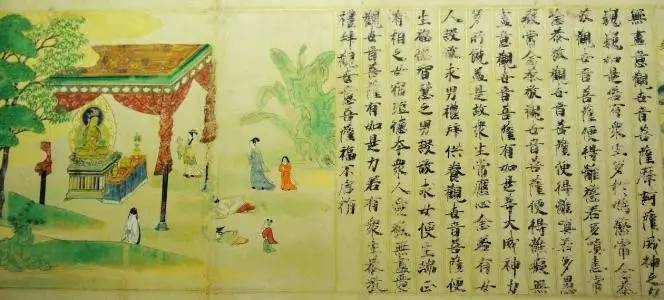 無盡意觀世音菩薩摩訶薩威神之力
巍巍如是若有衆生多於婬欲常念恭
敬觀世音菩薩便得離欲若多瞋恚常
念恭敬觀世音菩薩便得離瞋若多愚
癡常念恭敬觀世音菩薩便得離癡無
盡意觀世音菩薩有如是等大威神力
多所饒益是故衆生常應心念若有女
人設欲求男禮拜供養觀世音菩薩便
生福德智慧之男設欲求女便生端正
有相之女宿殖德本衆人愛敬無盡意
觀世音菩薩有如是力若有衆生恭敬
禮拜觀世音菩薩福不唐捐